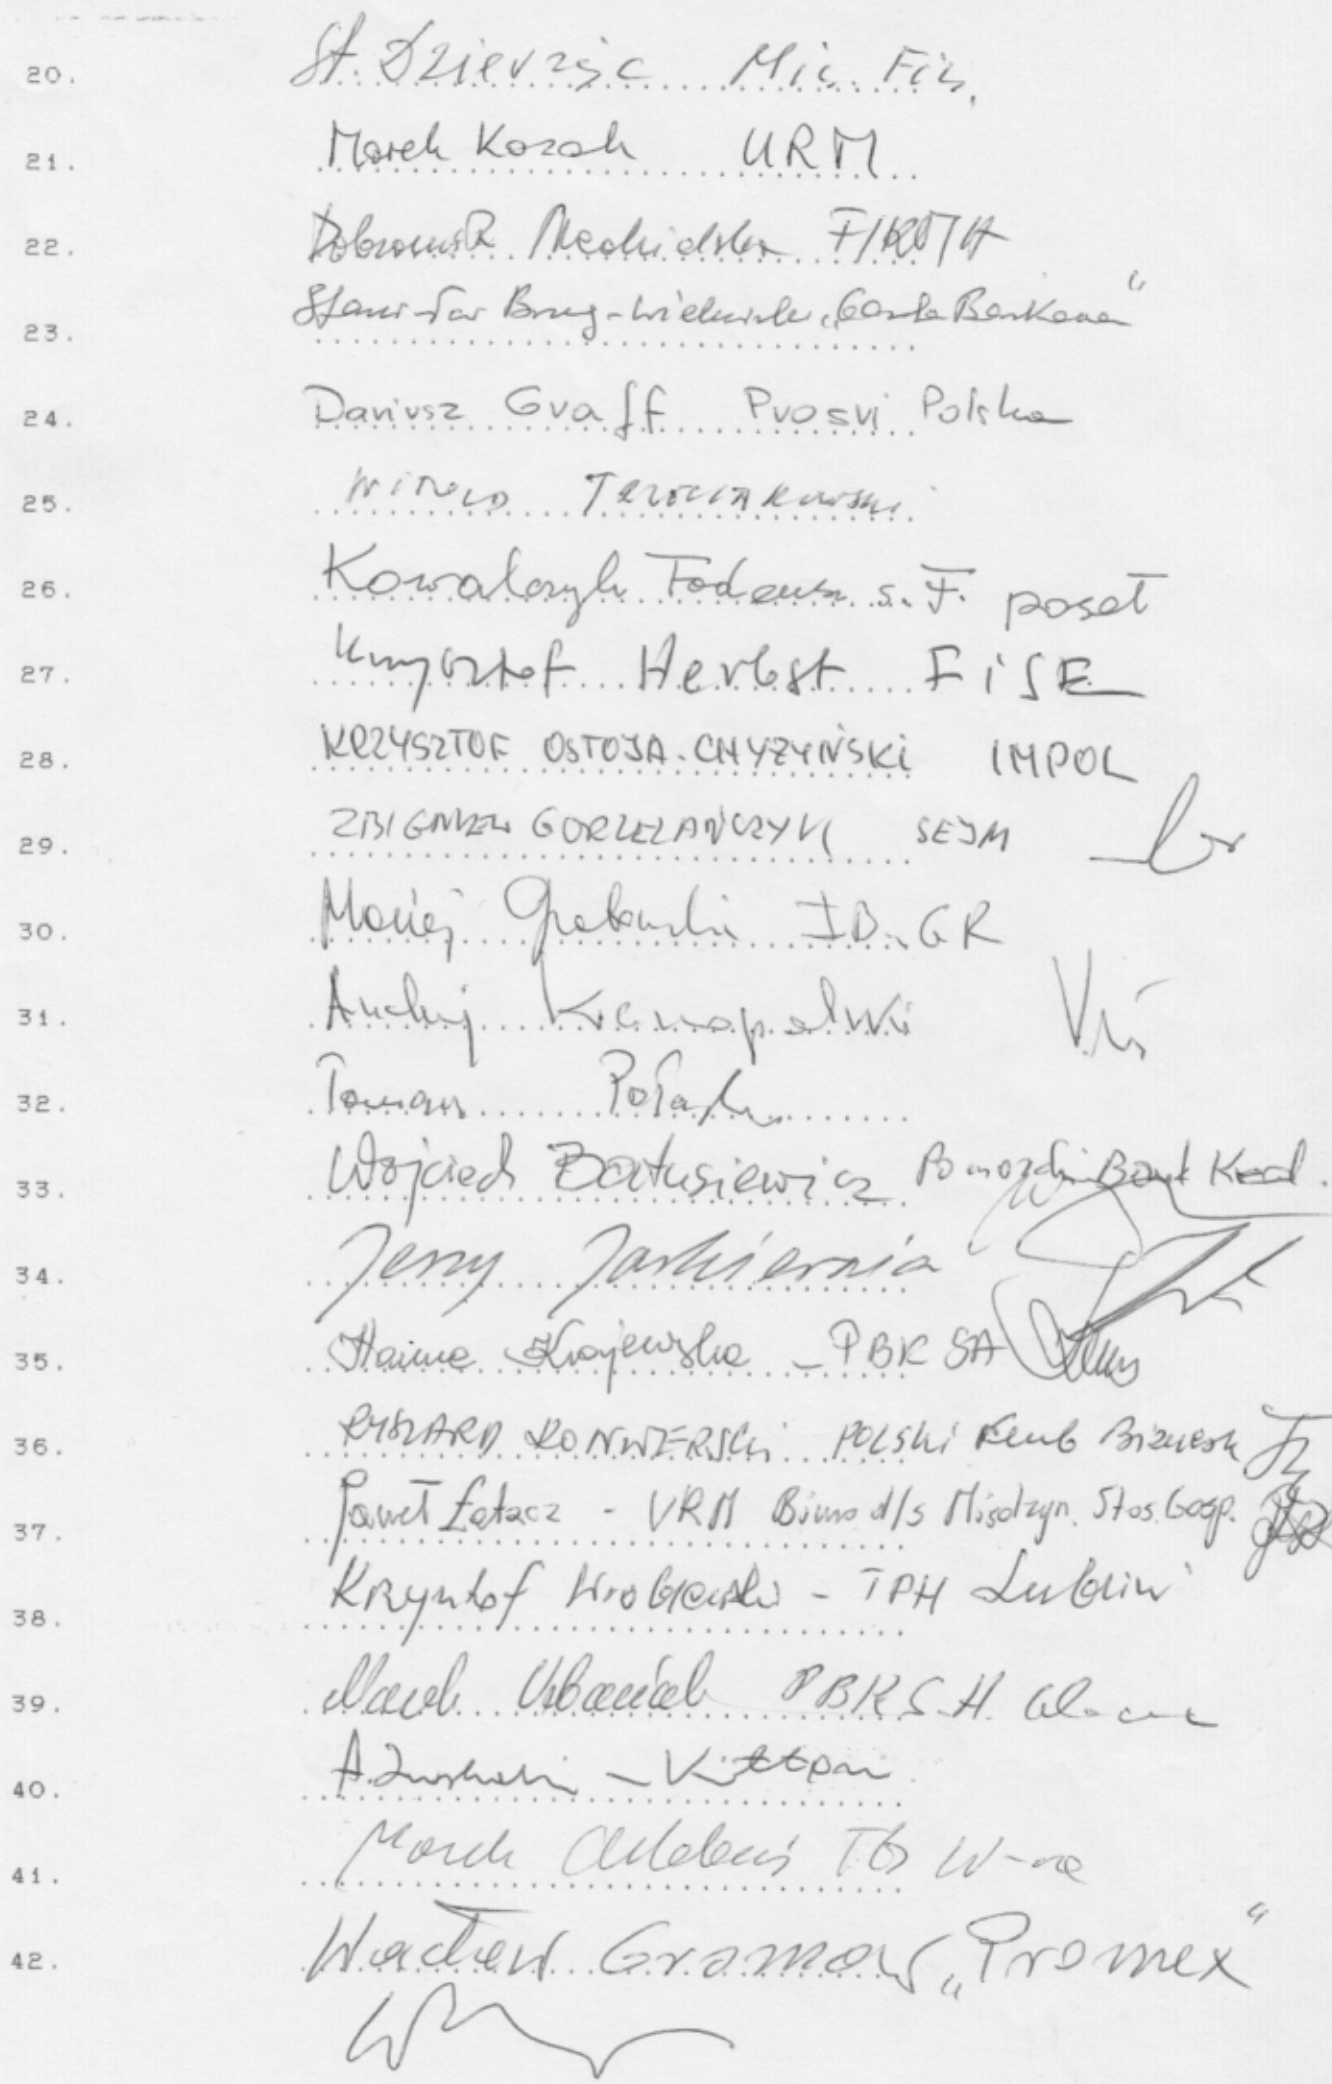 20. St. Dzierżąc Min. Fin.
21. Marek Kozak URM
22. FIRMA
23. Stanisław Brzeg-Wieluński "Gazeta Bankowa"
24. Dariusz Graff Prosvi Polska
25. WITOLD TRZECIAKOWSKI
26. Kowalczyk Tadeusz s. F. poseł
27. Krzysztof Herbst FISE
28. KRZYSZTOF OSTOJA-CHYŻYŃSKI IMPOL
29. ZBIGNIEW GORZELAŃCZYK SEJM
30. Maciej Grabowski IBnGR
31. Andrzej
32. Tomasz
33. Wojciech Bartusiewicz Pomorski Bank Kred.
34. Jerzy Jaskiernia
35. Hanna Krajewska - PBK SA
36. RYSZARD KONWERSKI POLSKI Klub Biznesu
37. Paweł Łatacz - URM Biuro d/s Międzyn. Stos. Gosp.
38. Krzysztof Wróblewski - IPH Lublin
39. Marek Urbaniak PBK S.A.
40. A.
41. Marek W-wa
42. Wacław Gramow "Promex"